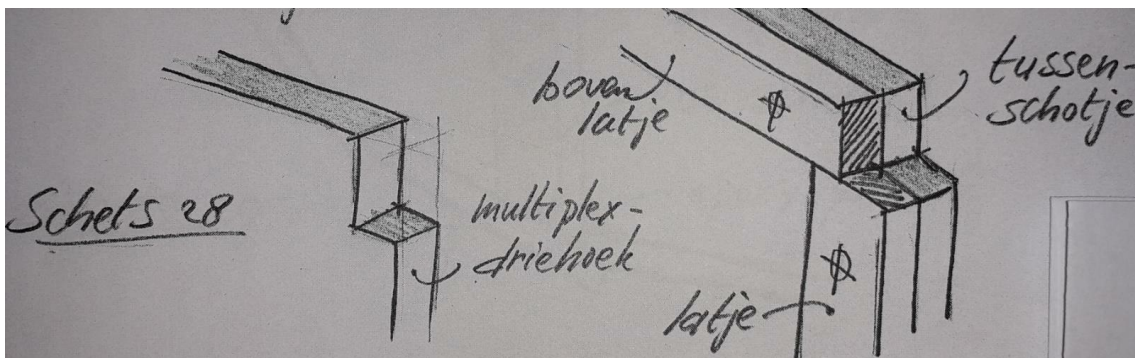 Schets 28
multiplex-
driehoek
boven
latje
tussen-
schotje
latje